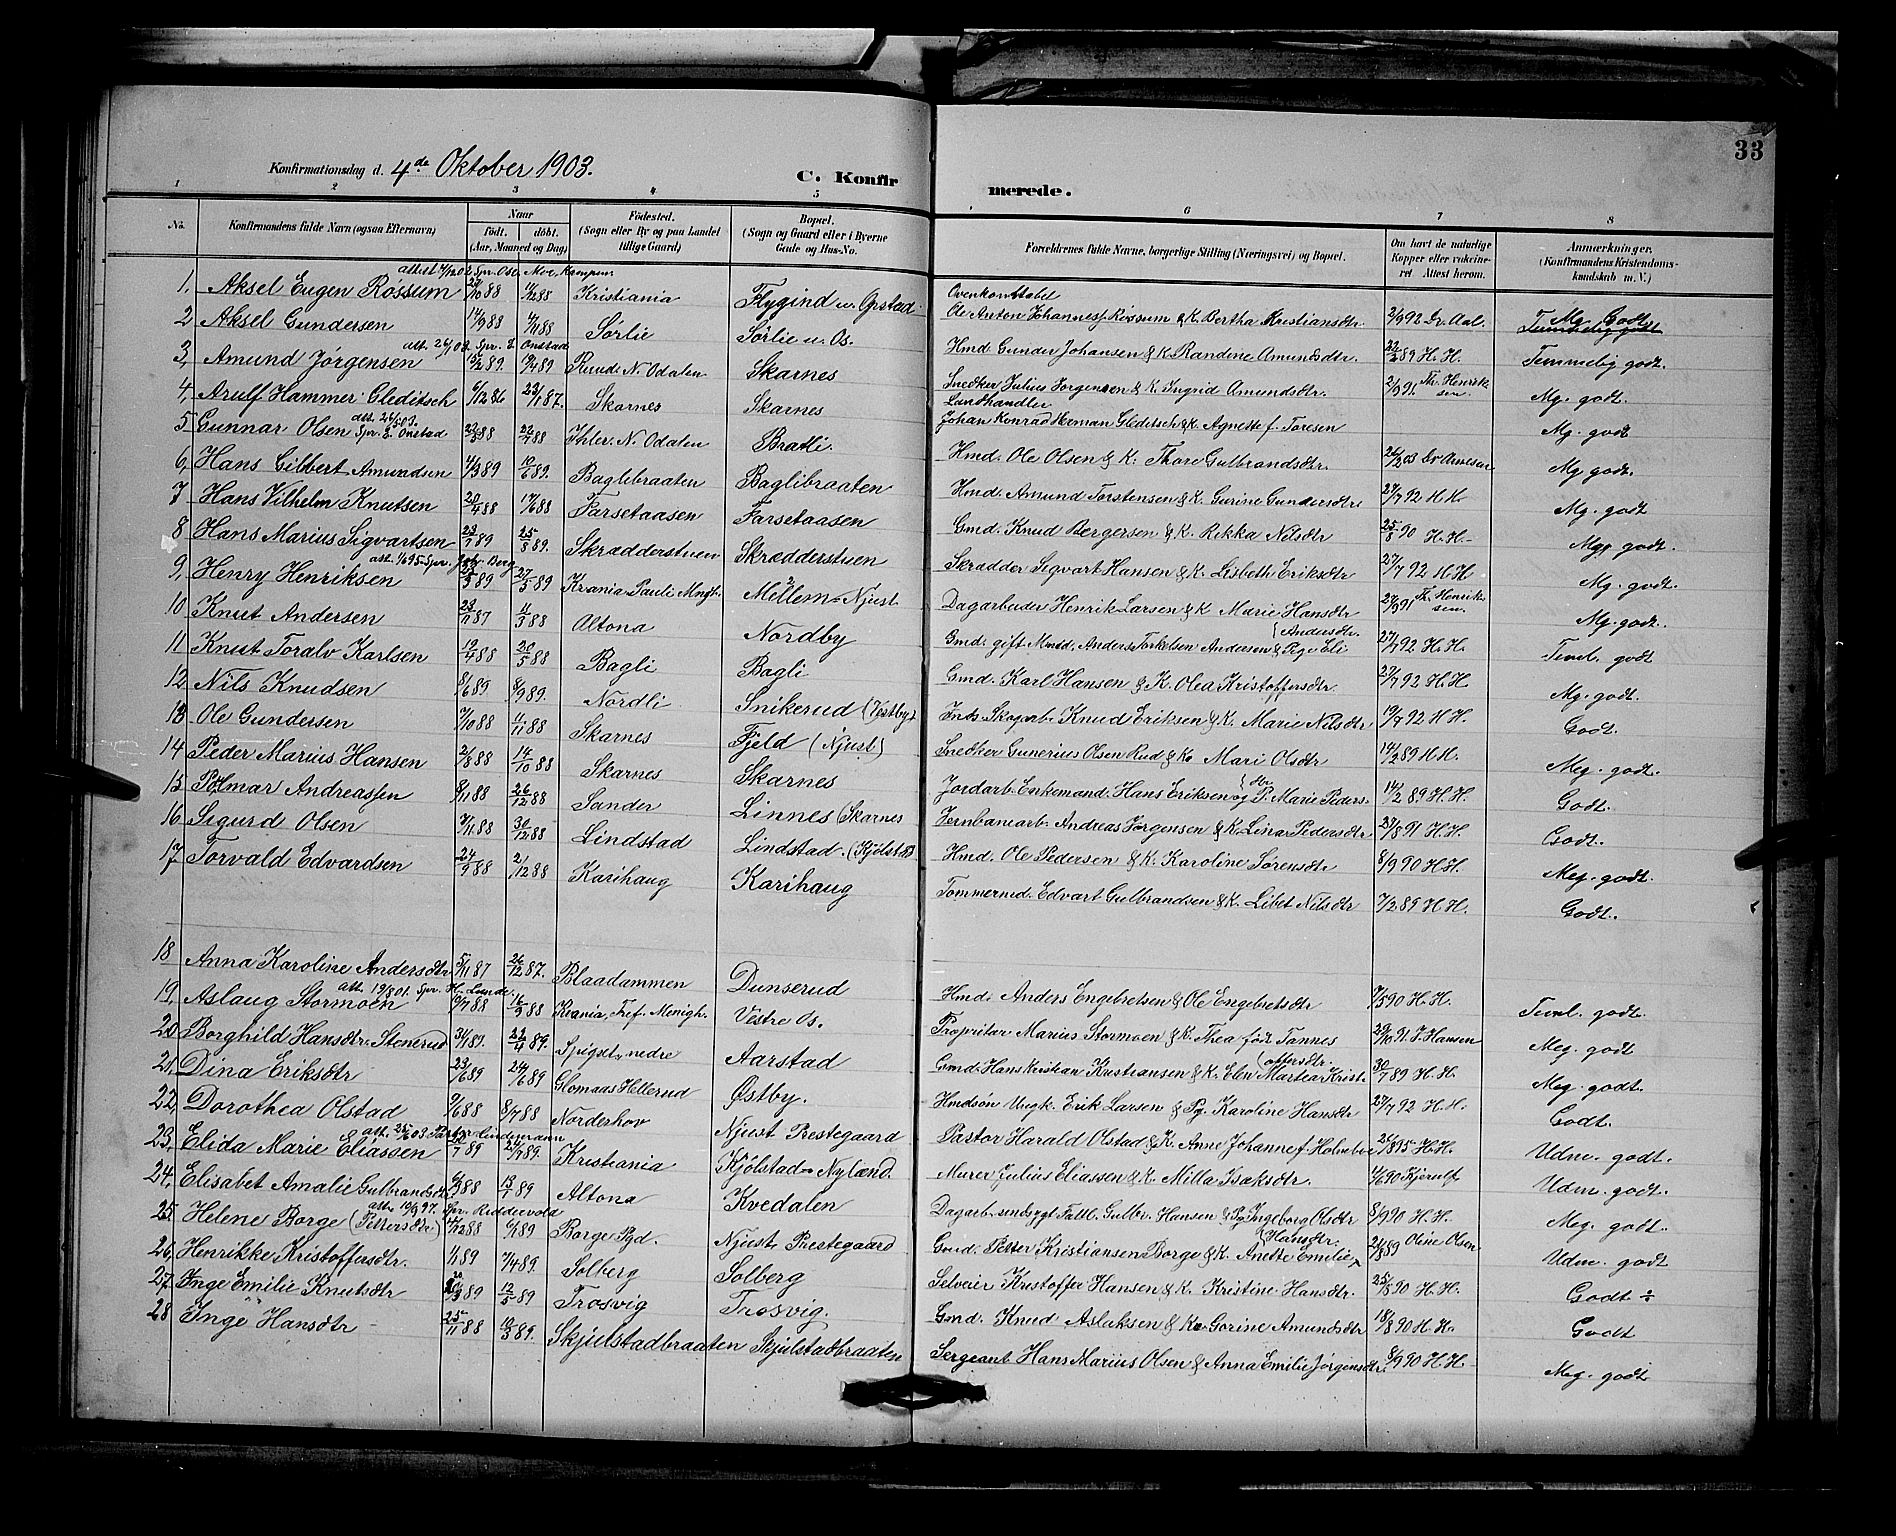 33
Konfirmationsdag d. 4de Oktober 1903.
C. Konfirmerede.
1 2 3 4 5 6 7 8
No. | Konfirmandens fulde Navn (ogsaa Efternavn) | Naar født. døbt. (Aar, Maaned og Dag) | Fødested. (Sogn eller By og paa Landet tillige Gaard) | Bopæl. (Sogn og Gaard eller i Byerne Gade og Hus-No. | Forældrenes fulde Navne, borgerlige Stilling (Næringsvei) og Bopæl. | Om havt de naturlige Kopper eller vaccineret. Attest herom. | Anmærkninger. (Konfirmandens Kristendomskundskab m. V.)
1, Aksel Eugen Røssum 88 88 Kristiania Flygind u. Opstad Ole Anten Johannesf. Røssum & K. Bertha Kristiansdtr. 2/9 92 Dr Aal. Mg. Godt
2 Aksel Gundersen 14/9 88 4/11 88 Sørlie Sørlie u. Os. Hmd. Gunder Johansen & K. Randine Amundsdtr. 22/2 89 H. H. Temmelig godt.
3, Amund Jørgensen 15/2 89. 19/4 89 Ruud i N. Odalen Skarnes Snedker Julius Jørgensen & K. Ingrid Amundsdtr. 2/9 91. Th. Henriksen. Mg. godt.
4, Arulf Hammer Gleditsch 6/12 86 23/1 87. Skarnes Skarnes Landhandler Johan Konrad Herman Gleditsch & K. Agnethe f. Toresen Mg. godt
5 Gunnar Olsen att. 26/5 03. Spr. L. Onstad 88 22/7 88 Ihler. N. Odalen Bratli. Hmd. Ole Olsen & K. Thore Gulbrandsdtr. 26/2 03 Dr Arnesen Mg godt.
6, Hans Gilbert Amundsen 4/3 89 10/6 89. Baglibraaten Baglibraaten Hmd. Amund Torstensen & K. Gurine Gundersdtr. 27/7 92 H H Mg. godt
7 Hans Vilhelm Knutsen 20/4 88 17/6 88 Farsetaasen Farsetaasen Gmd. Knud Bergersen & K. Rekka Nilsdtr 25/8 90 H. H. Mg. godt.
8 Hans Marius Sigvartsen 23/1 89 25/3 89. Skrædderstuen Skrædderstuen Skrædder Sigvart Hansen & K. Lisbeth Eriksdtr 27/7 92 H H Mg. godt.
9, Henry Henriksen 89 27/5 89 Krania Pauli Mngh. Mellem-Njust Dagarbeider Henrik Larsen & K. Marie Hansdtr 27/9 91 Th. Henriksen. Mg. godt.
10 Knut Andersen 23/11 87 11/3 88 Altona Nordby Gmd. gift Mand, Anders Torkelsen Andersen & Pige Eli Andersdtr. 27/7 92 H. H. Teml. godt
11 Knut Toralv Karlsen 12/4 88 20/5 88 Bagli Bagli Gmd. Karl Hansen & K. Olea Kristoffersdtr. 27/7 92 H. H. Mg. godt.
12 Nils Knudsen 8/6 89 8/9 89. Nordli Snikerud (Vestby) Inds. Skogarb. Knud Eriksen & K. Marie Nilsdtr 19/7 92 H H. Godt.
13 Ole Gundersen 7/10 88 11/11 88 Skarnes Fjeld (Njust) Snedker Gunerius Olsen Rud & K. Mari Olsdtr 14/2 89 H H. Meg. godt.
14 Peder Marius Hansen 2/8 88 14/10 88 Skarnes Skarnes Jordarb. Enkemand. Hans Eriksen og P. Marie Pedersdtr 14/2 89 H. H. Godt.
15 Palmar Andreassen 8/11 88 26/12 88 Sander Linnes (Skarnes Jernbanearb. Andreas Jørgensen & K. Lina Pedersdtr 27/8 91 H. H. Godt.
16 Sigurd Olsen 7/11 88 30/12 88 Lindstad Lindstad. (Kjølstad) Hmd. Ole Pedersen & K. Karoline Sørensdtr 8/9 90 H. H. Meg. godt.
17 Torvald Edvardsen 24/9 88 2/12 88 Karihaug Karihaug Tømmermd. Edvart Gulbrandsen & K. Libet Nilsdtr 7/2 89 H. H. Godt.
18 Anna Karoline Andersdtr 5/11 87 26/12 87. Blaadammen Dunserud Hmd. Anders Engebretsen & Ole Engebretsdtr 9/5 90 H. H. Teml. godt.
19, Aslaug Stormoen att. 19/8 01. Spr. H. Lunde. 19/7 88 16/9 88 Krania, Tref. Menigh. Vestre Os. Proprietær Marius Stormoen & K. Thea født Tannes 29/10 91. J. Hansen Meg. godt
20 Borghild Hansdtr. Stenerud 31/1 89. 22/4 89. Spigset, nedre Aarstad Gmd. Hans Kristian Kristiansen & K. Elen Martea Kristoffersdtr. 30/7 89 H. H. Meg. godt.
21, Dina Eriksdtr 23/6 89 24/6 89 Glomaas Hellerud Østby. Hmdsøn Ungk. Erik Larsen & Pg. Karoline Hansdtr 27/7 92 H. H. Godt.
22, Dorothea Olstad 9/6 88 8/7 88 Norderhov Njust Prestegaard Pastor Harald Olstad & K. Anne Johanne f. Holmboe 26/8 95 H. H. Udm. godt.
23, Elida Marie Eliassen att. 25/6 03 Pastor Lindemann 89 89. Kristiania Kjølstad-Nylænd. Murer Julius Eliassen & K. Milla Isaksdtr. 4/6 90 Kjerulf Udm. godt.
24, Elisabet Amalie Gulbrandsdtr 6/3 88 13/1 89 Altona Kvedalen Dagarb. Gulbr. Hansen & Pg Ingeborg Olsdtr 8/9 90 H. H. Meg. godt.
25 Helene Borge (Pettersdtr) att. 19/9 97. Spr. Riddervold 88 6/1 89 Borge Pgd. Njust Prestegaard Gmd. Petter Kristiansen Borge & K. Anette Emilie Hansdtr. 24/8 89 Oline Olsen Udm. godt
26 Henrikke Kristoffersdtr. 1/1 89 7/4 89. Solberg Solberg Selveier Kristoffer Hansen & K. Kristine Hansdtr. 25/8 90 H. H. Godt ÷
27, Inge Emilie Knutsdtr 89 12/5 89 Trosvig Trosvig. Gmd. Knud Aslaksen & K. Gorine Amundsdtr 18/8 90 H. H. Godt
28 Inge Hansdtr 25/11 88 10/3 89. Skjulstadbraaten Skjulstadbraaten Sergeant Hans Marius Olsen & Anna Emilie Jørgensdtr. 8/9 90 H. H. Meg. godt